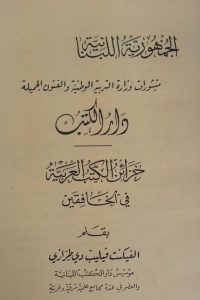 الجمهورية اللبنانية
منشورات وزارة التربية الوطنية والفنون الجميلة
دار الكتب
خزائن الكتب العربية
في الخافقين
بقلم
الفيكنت فيليب دي طرازي
مؤسس دار الكتب اللبنانية
والعضو في عدة مجامع علمية شرقية وغربية